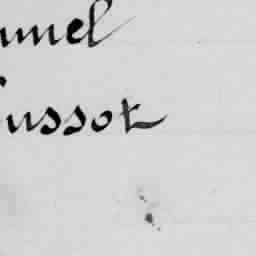 unel
ussot